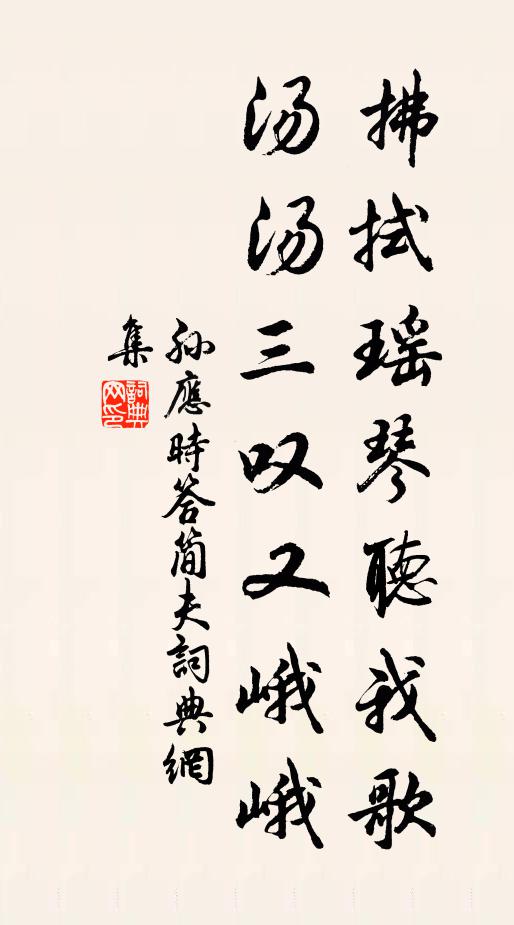 拂拭瑶琴聽我歌
汤汤三叹又峨峨
孙應時答簡夫詞典網
集
詞典
网印